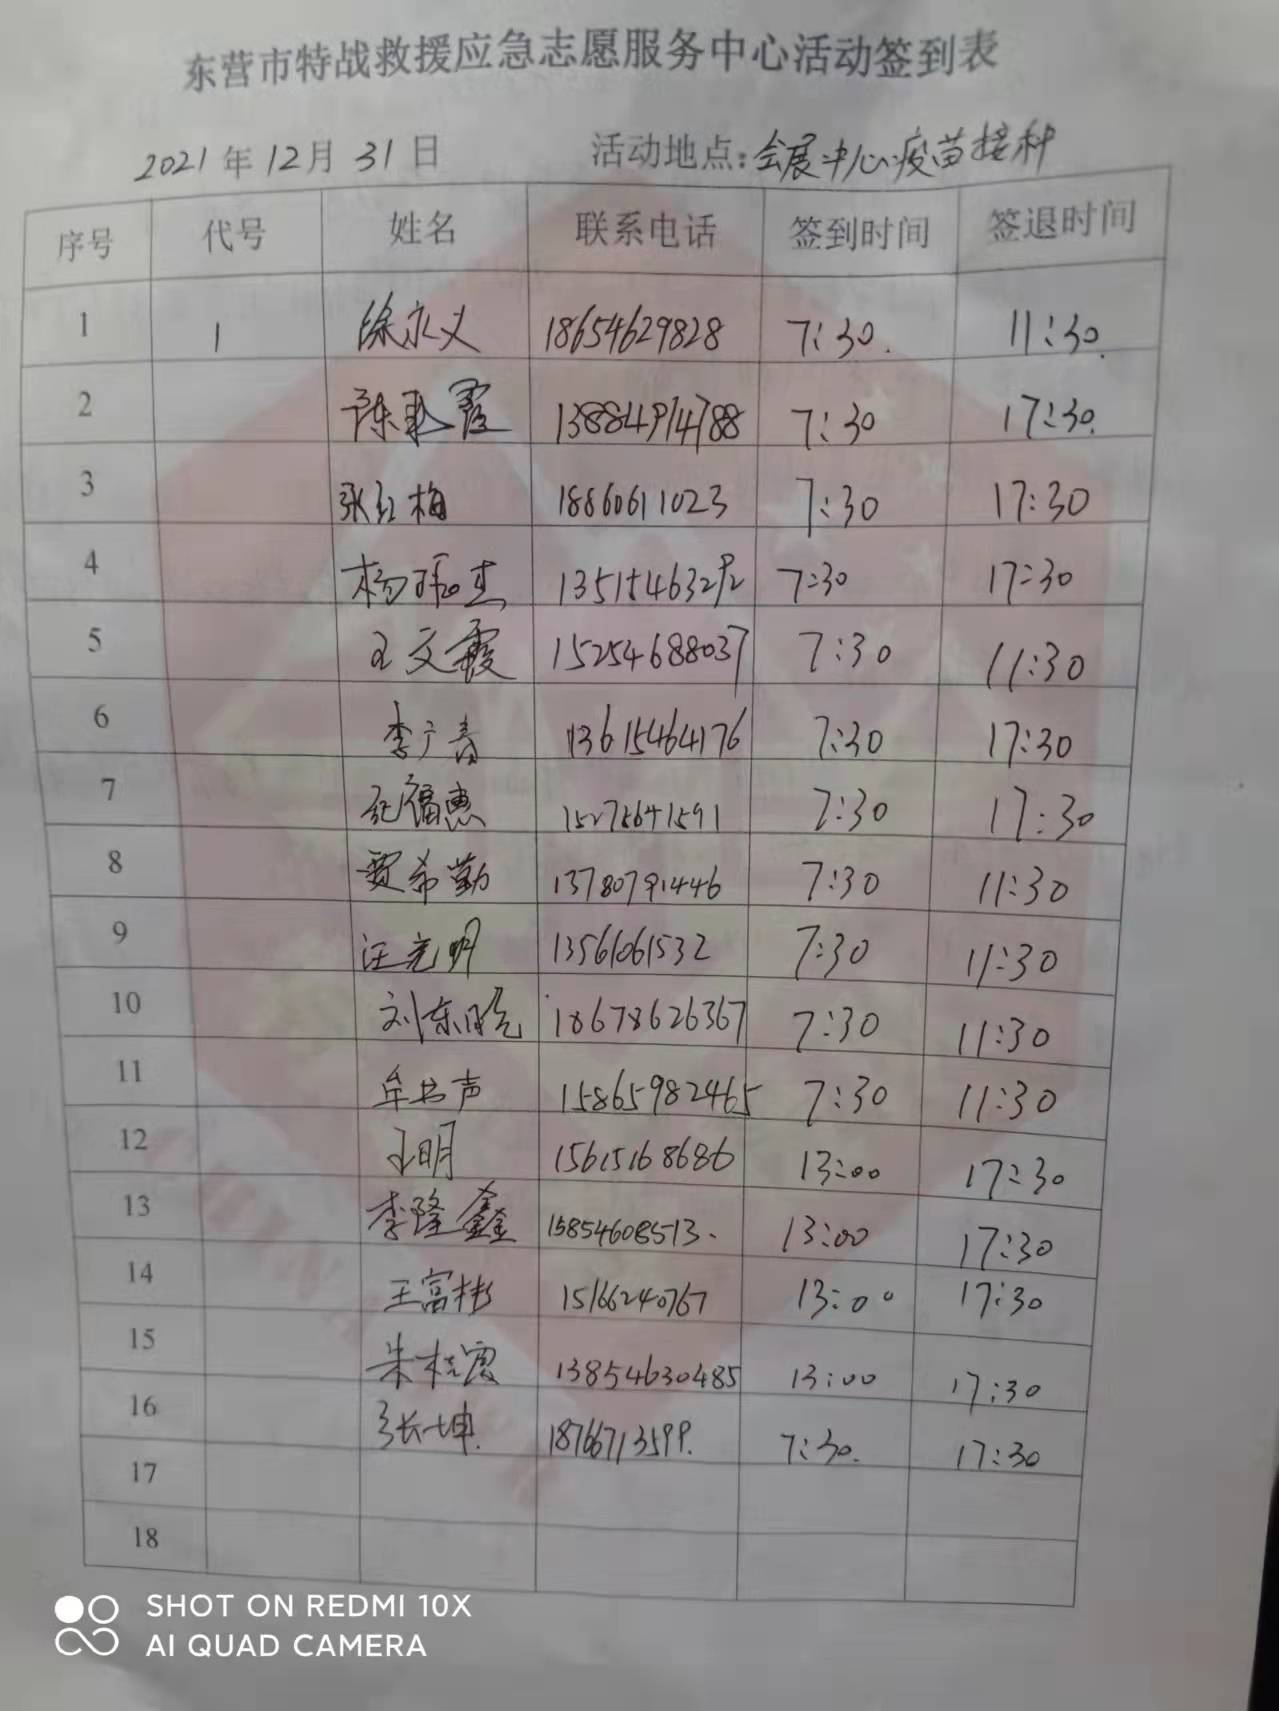 东营市特战救援应急志愿服务中心活动签到表
2021年12月31日 活动地点:会展中心疫苗接种
序号 代号 姓名 联系电话 签到时间 签退时间
1 1 徐永义 18654629828 7:30. 11:30.
2 陈耿霞 13884974788 7:30 17:30.
3 张红梅 18860611023 7:30 17:30
4 杨杰 13515463292 7:30 17:30
5 王文霞 15254688037 7:30 11:30
6 李广青 13615464176 7:30 17:30
7 纪福惠 15275641591 7:30 17:30
8 贾希勤 13780791446 7:30 11:30
9 汪光明 13561061532 7:30 11:30
10 刘东晓 18678626367 7:30 11:30
11 牟书声 15865982465 7:30 11:30
12 王明 15615168686 13:00 17:30
13 李隆鑫 15854608513. 13:00 17:30
14 王富彬 15166240767 13:00 17:30
15 朱桂霞 13854630485 13:00 17:30
16 张坤. 18766713599. 7:30. 17:30
17
18
SHOT ON REDMI 10X
AI QUAD CAMERA